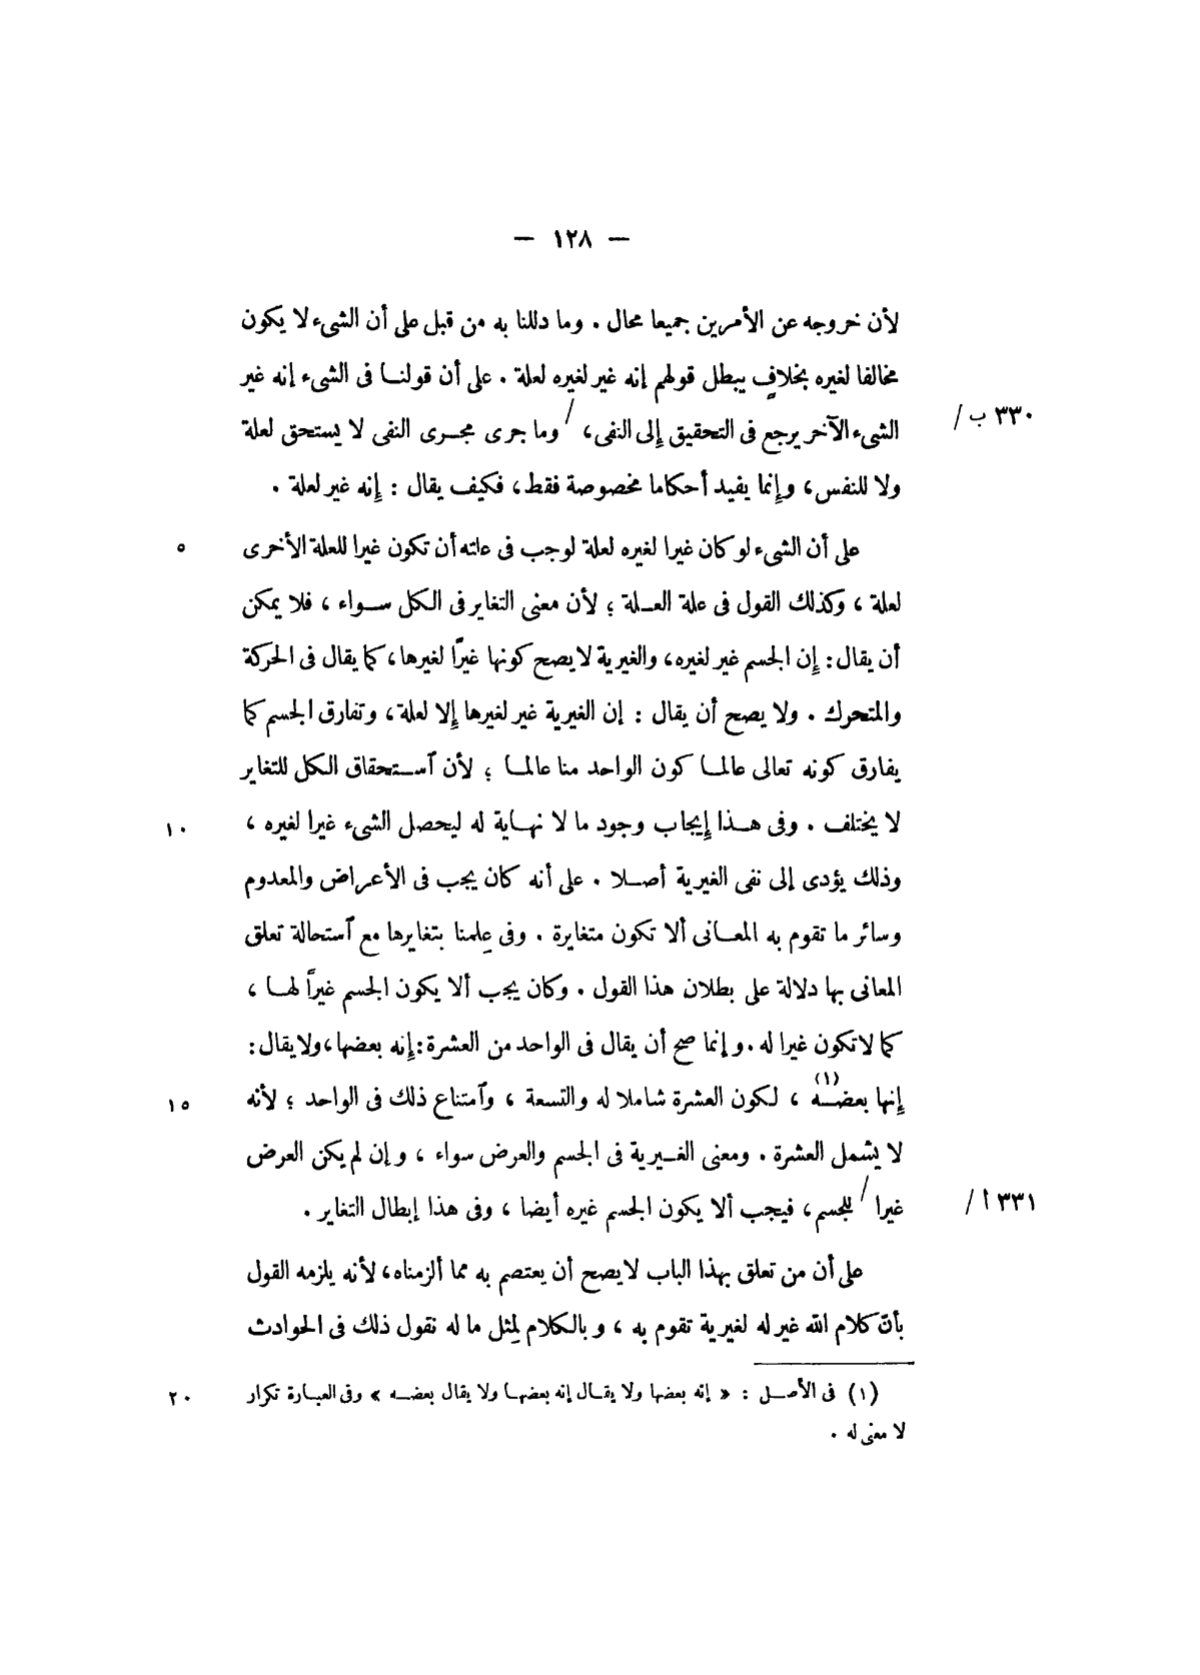 — ١٢٨ —
لأن خروجه عن الأمرين جميعا محال . وما دللنا به من قبل على أن الشىء لا يكون
مخالفا لغيره بخلافٍ يبطل قولهم إنه غير لغيره لعلة . على أن قولنا فى الشىء إنه غير
الشىء الآخر يرجع فى التحقيق إلى النفى، / وما جرى مجرى النفى لا يستحق لعلة
٣٣٠ ب /
ولا للنفس، وإنما يفيد أحكاما مخصوصة فقط، فكيف يقال : إنه غير لعلة .
على أن الشىء لو كان غيرا لغيره لعلة لوجب فى علته أن تكون غيرا للعلة الأخرى
٥
لعلة ، وكذلك القول فى علة العلة ؛ لأن معنى التغاير فى الكل سواء ، فلا يمكن
أن يقال: إن الجسم غير لغيره، والغيرية لا يصح كونها غيرًا لغيرها، كما يقال فى الحركة
والمتحرك . ولا يصح أن يقال : إن الغيرية غير لغيرها إلا لعلة، وتفارق الجسم كما
يفارق كونه تعالى عالما كون الواحد منا عالما ؛ لأن ٱستحقاق الكل للتغاير
لا يختلف . وفى هذا إيجاب وجود ما لا نهاية له ليحصل الشىء غيرا لغيره ،
١٠
وذلك يؤدى إلى نفى الغيرية أصلا . على أنه كان يجب فى الأعراض والمعدوم
وسائر ما تقوم به المعانى ألا تكون متغايرة . وفى عِلمنا بتغايرها مع ٱستحالة تعلق
المعانى بها دلالة على بطلان هذا القول . وكان يجب ألا يكون الجسم غيرًا لها ،
كما لا تكون غيرا له . وإنما صح أن يقال فى الواحد من العشرة: إنه بعضها، ولا يقال:
إنها بعضه (١) ، لكون العشرة شاملا له والتسعة ، وٱمتناع ذلك فى الواحد ؛ لأنه
١٥
لا يشمل العشرة . ومعنى الغيرية فى الجسم والعرض سواء ، وإن لم يكن العرض
غيرا / للجسم، فيجب ألا يكون الجسم غيره أيضا ، وفى هذا إبطال التغاير .
٣٣١ أ /
على أن من تعلق بهذا الباب لا يصح أن يعتصم به مما ألزمناه، لأنه يلزمه القول
بأنّ كلام الله غير له لغيرية تقوم به ، و بالكلام لِمثل ما له نقول ذلك فى الحوادث
(١) فى الأصل : « إنه بعضها ولا يقال إنه بعضها ولا يقال بعضه » وفى العبارة تكرار
٢٠
لا معنى له .